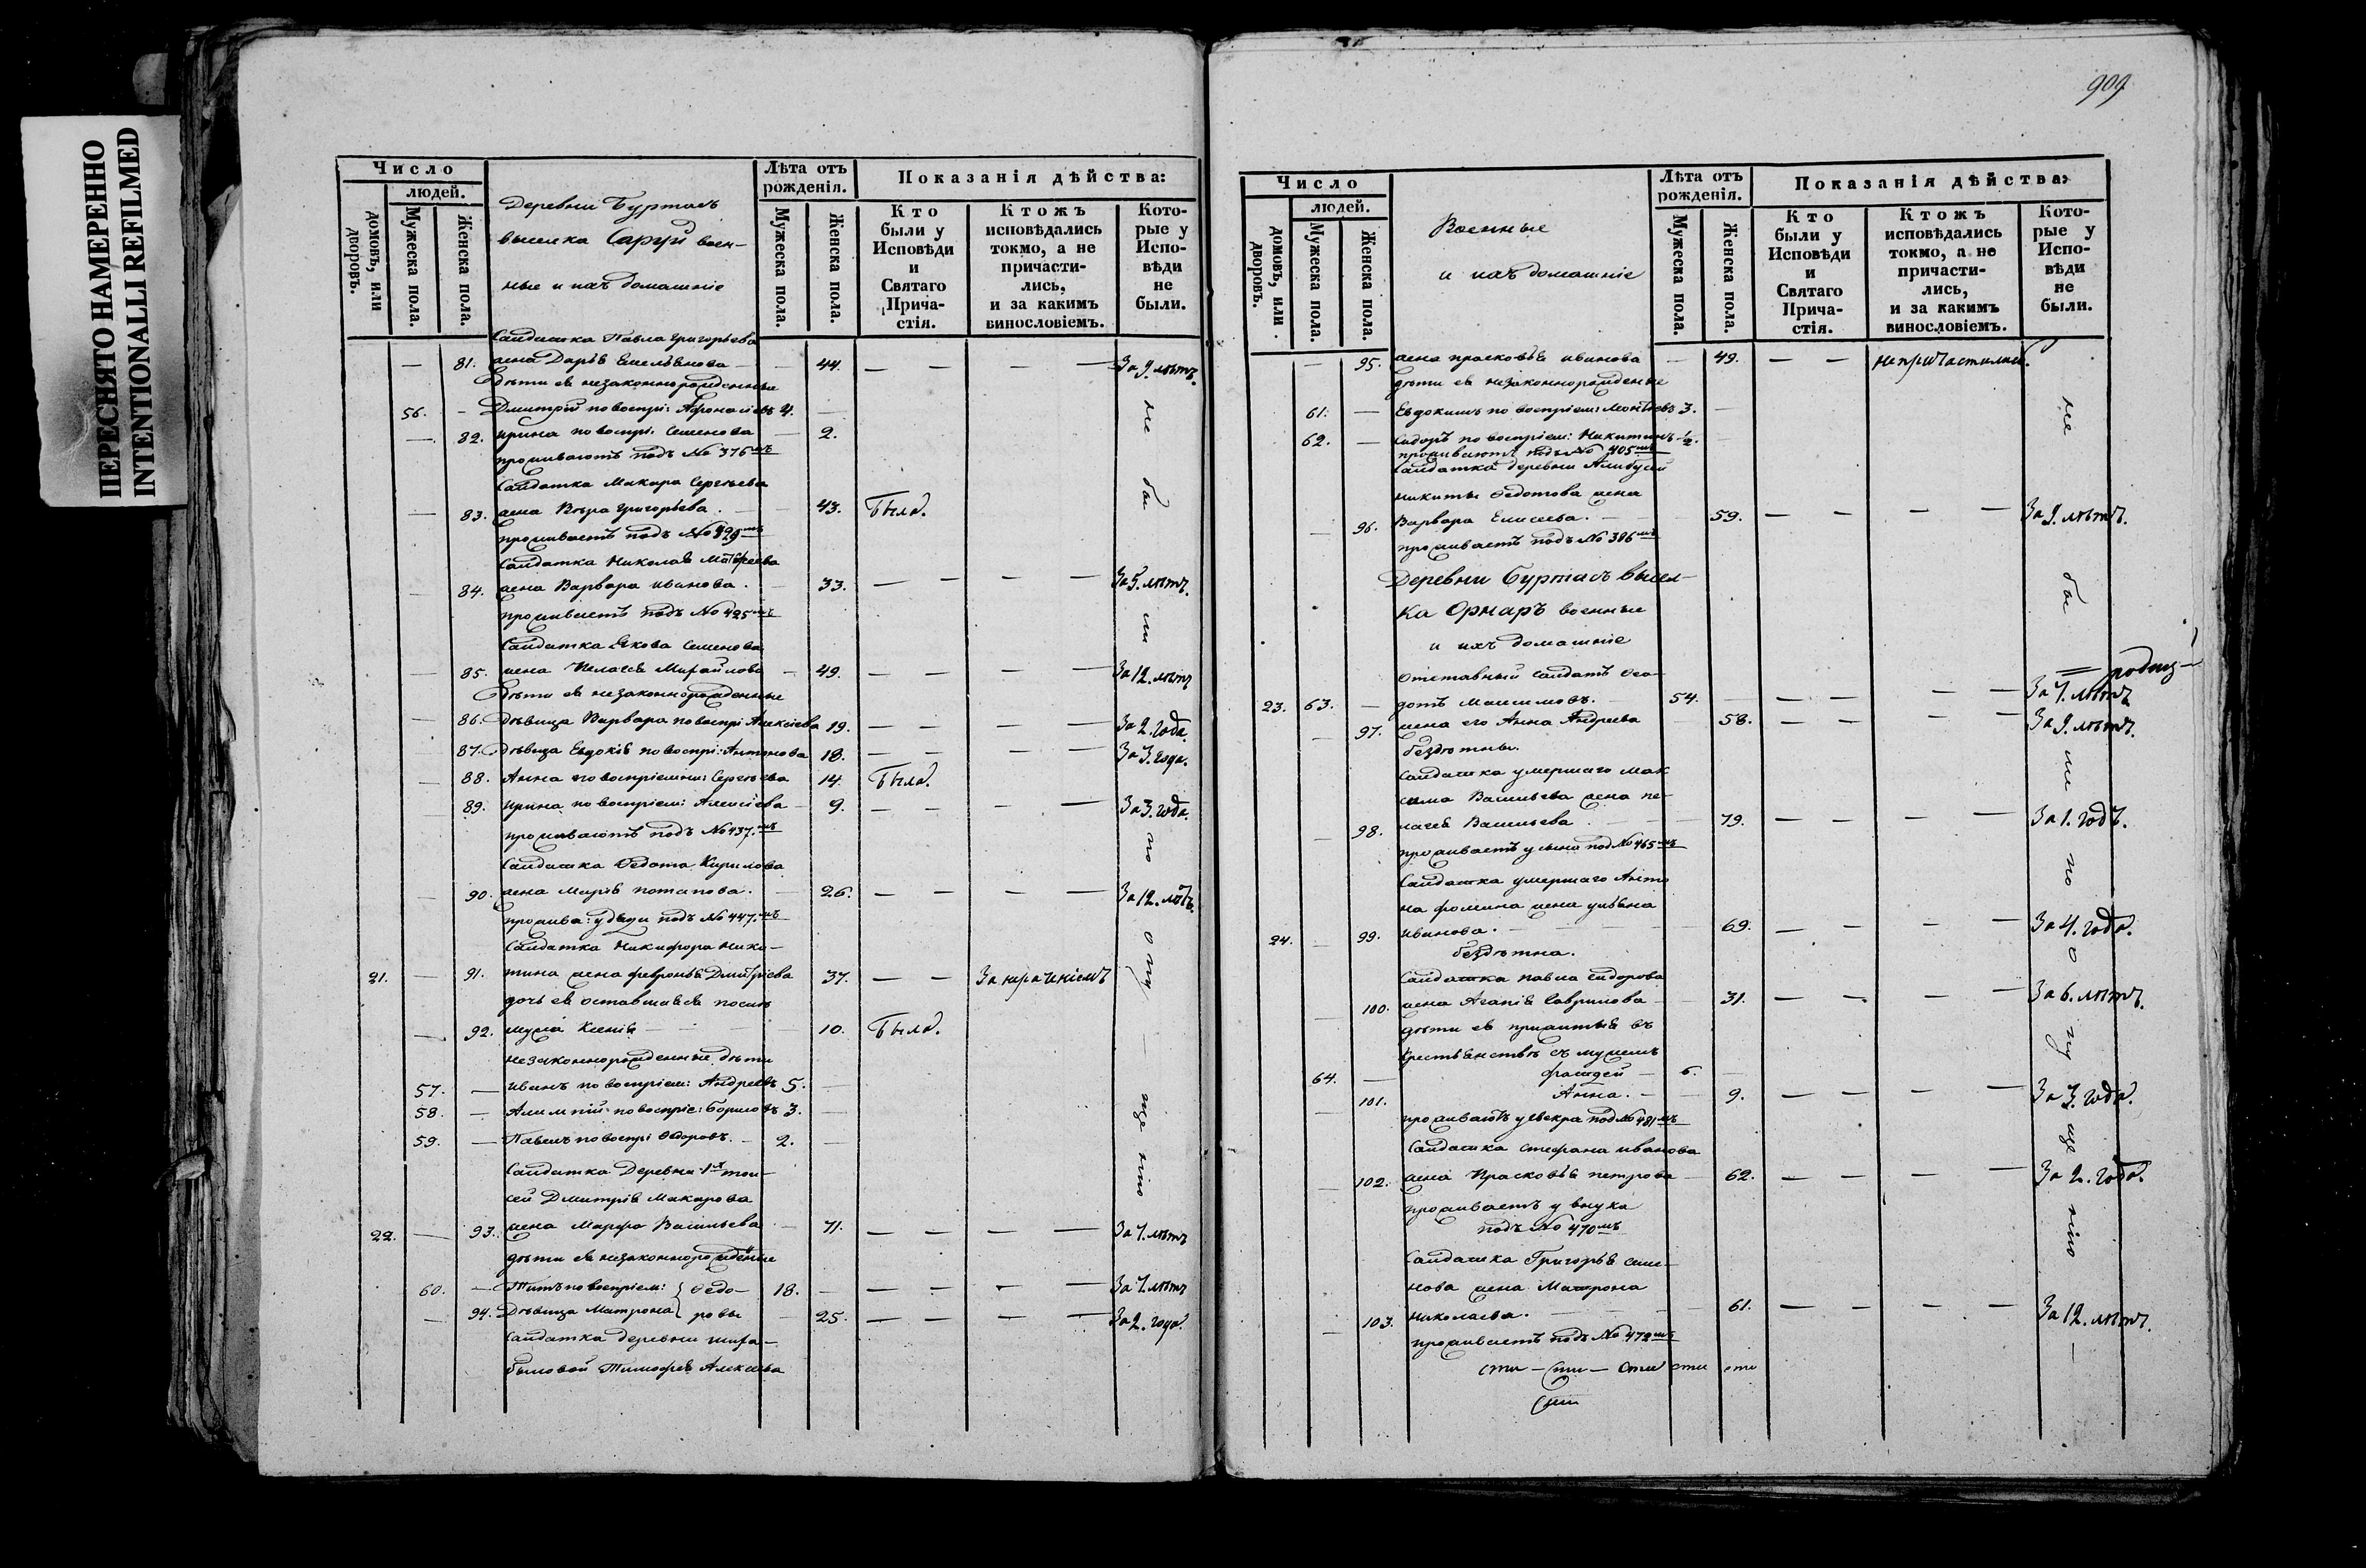 ПЕРЕСНЯТО НАМЕРЕННО
INTENTIONALLI REFILMED
Число
людей.
домовъ, или дворовъ.
Мужеска пола.
Женска пола.
Деревни Буртасъ
выселка Саруй воен-
ные и ихъ домашніе
Лѣта отъ рожденія.
Мужеска пола.
Женска пола.
Показанія дѣйства:
Кто были у Исповѣди и Святаго Причастія.
Ктожъ исповѣдались токмо, а не причастились, и за какимъ винословіемъ.
Которые у Исповѣди не были.
Салдатка Павла Григорьева
— 81. жена Дарья Емельянова — 44. — — — — За 9. лѣтъ.
дѣти ея незаконнорожденные
56. — Дмитрій по воспрі: Афонасіевъ 4. —
— 82. Ирина по воспрі: Семенова — 2.
проживаютъ подъ № 376мъ
Салдатка Макара Сергѣева
— 83. жена Вѣра Григорьева. — 43. Была.
проживаетъ подъ № 429мъ
Салдатка Николая Матфеева
— 84. жена Варвара Иванова. — 33. — — — — За 5. лѣтъ.
проживаетъ подъ № 425мъ
Салдатка Якова Семенова
— 85. жена Пелагея Михайлова — 49. — — — — За 12. лѣтъ
дѣти ея незаконнорожденные
— 86. дѣвица Варвара по воспрі Алексіева 19. — — — — За 2. года.
87. дѣвица Евдокія по воспрі: Антонова 18. — — — — За 3. года.
— 88. Анна по воспріемни: Сергѣева 14. Была.
— 89. Ирина по воспріем: Алексіева — 9. — — — — За 3. года.
проживаютъ подъ № 437.мъ
Салдатка Федота Кирилова
— 90. жена Марія Потапова. — 26. — — — — За 12. лѣтъ.
прожива: у дяди подъ № 447.мъ
Салдатка Никифора Ники-
21. — 91. тина жена Февронья Дмитріева 37. — — За нераченіемъ
дочь ея оставшаяся послѣ
— 92. мужа Ксенія — — 10. Была.
незаконнорожденные дѣти
57. — Иванъ по воспріем: Андреевъ 5. —
58. — Алимпій по воспріе: Борисовъ 3. —
59. — Павелъ по воспрі Ѳедоровъ. — 2. —
Салдатка Деревни 1й
сей Дмитрія Макарова
22. — 93. жена Марфа Васильева — 71. — — — — За 7. лѣтъ
дѣти ея незаконнорожденные
60. — Титъ по воспріем: } Ѳедо- 18. — — — — — За 7. лѣтъ
— 94. Дѣвица Матрона } ровы — 25. — — — — За 2. года.
Салдатка деревни
быловой Тимофея Алексеева
не бы ли по опу ще нію
909
Число
людей.
домовъ, или дворовъ.
Мужеска пола.
Женска пола.
Военные
и ихъ домашніе
Лѣта отъ рожденія.
Мужеска пола.
Женска пола.
Показанія дѣйства:
Кто были у Исповѣди и Святаго Причастія.
Ктожъ исповѣдались токмо, а не причастились, и за какимъ винословіемъ.
Которые у Исповѣди не были.
— 95. жена Прасковья Иванова — 49. — — не причастилась.
дѣти ея незаконнорожденые
61. — Евдокимъ по воспріем: 3. —
62. — Сидоръ по воспріем: Никитинъ ½. —
проживаютъ подъ № 405мъ
Салдатка деревни
Никиты Федотова жена
— 96. Варвара Елисеева. — 59. — — — — За 9. лѣтъ.
проживаетъ подъ № 386мъ
Деревни Буртасъ высел-
ка Орнаръ военные
и ихъ домашніе
Отставный салдатъ Ѳео-
23. 63. — дотъ Максимовъ. — 54. — — — — — За 7. лѣтъ
— 97. жена его Анна Андреева — 58. — — — — За 9. лѣтъ.
бездѣтны.
Салдатка умершаго Мак
сима Васильева жена Пе-
— 98. лагея Васильева — 79. — — — — За 1. годъ.
проживаетъ у сына под № 465мъ
Салдатка умершаго Анто
на Фомина жена Ульяна
24. — 99. Иванова. — 69. — — — — За 4. года.
бездѣтна.
Салдатка Павла Сидорова
— 100. жена Агапія Гаврилова — 31. — — — — За 6. лѣтъ.
дѣти ея прижитыя въ
крестьянствѣ съ мужемъ
64. — Фаддей — 6. —
— 101. Анна. — 9. — — — — За 3. года.
проживаютъ у свекра под № 481мъ
Салдатка Стефана Иванова
— 102. жена Прасковья Петрова — 62. — — — — За 2. года.
проживаетъ у внука
подъ № 470мъ
Салдатка Григорья Семе-
нова жена Матрона
— 103. Николаева. — 61. — — — — За 12. лѣтъ.
проживаетъ подъ № 472мъ
не бы ли по о пу ще нію